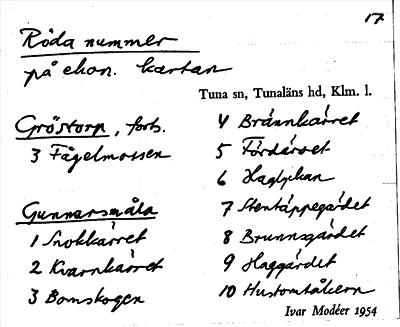 17
Röda nummer
på ekon. kartan
Tuna sn, Tunaläns hd, Klm. l.
Gröstorp, forts.
3 Fågelmossen
Gunnarsmåla
1 Snokkärret
2 Kvarnkärret
3 Bomskogen
4 Brännkärret
5
6
7 Stentäppegärdet
8 Brunnsgärdet
9 Haggärdet
10 Hustomtåkern
Ivar Modéer 1954